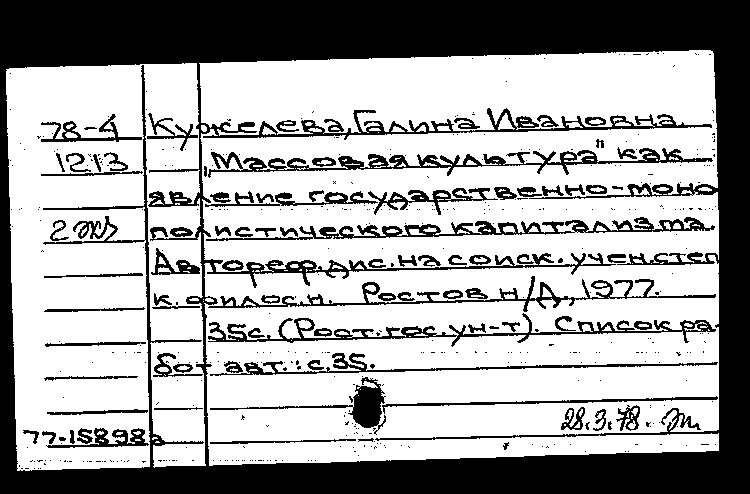 78-4 Кужелева, Галина Ивановна.
1213 „Массовая культура" как
явление государственно-моно
2 экз полистического капитализма.
Автореф. дис. на соиск. учен. степ
к. филос. н. Ростов н/Д., 1977.
35с. (Рост. гос. ун-т). Список ра-
бот авт.: с. 35.
28.3.78.
77-15898а